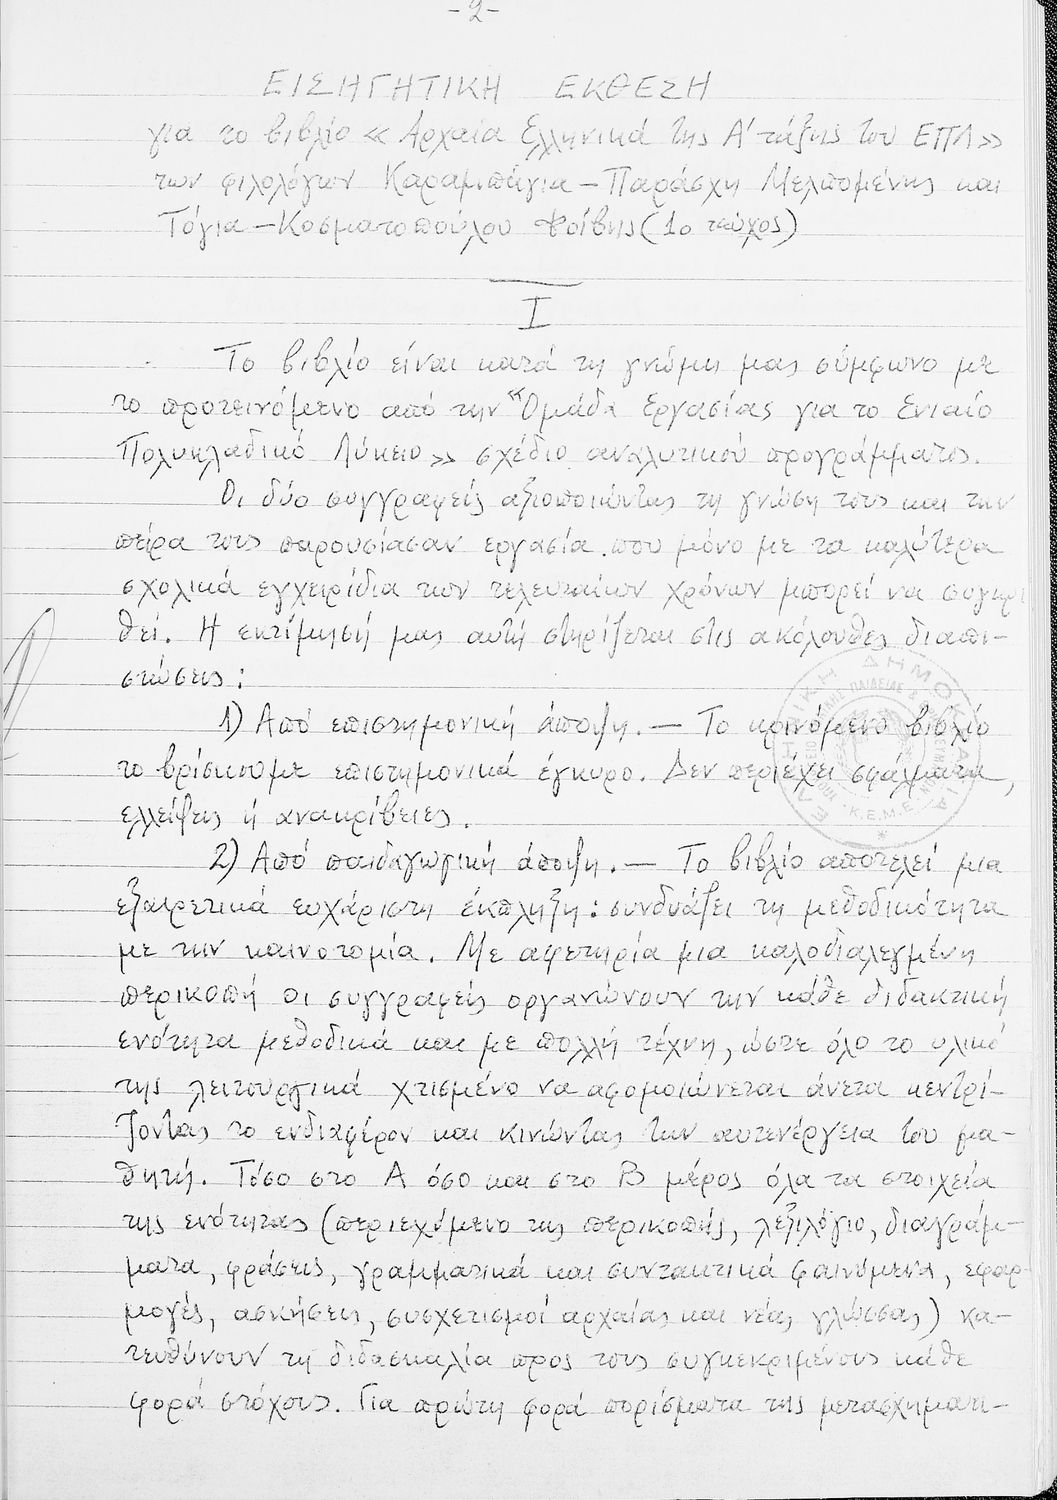 -2-
ΕΙΣΗΓΗΤΙΚΗ ΕΚΘΕΣΗ
για το βιβλίο «Αρχαία Ελληνικά της Α' τάξης του ΕΠΛ»
των φιλολόγων Καραμπάγια-Παράσχη Μελπομένης και
Τόγια-Κοσματοπούλου Φοίβης (1ο τεύχος)
I
Το βιβλίο είναι κατά τη γνώμη μας σύμφωνο με
το προτεινόμενο από την "Ομάδα Εργασίας για το Ενιαίο
Πολυκλαδικό Λύκειο» σχέδιο αναλυτικού προγράμματος.
Οι δύο συγγραφείς αξιοποιώντας τη γνώση τους και την
πείρα τους παρουσίασαν εργασία που μόνο με τα καλύτερα
σχολικά εγχειρίδια των τελευταίων χρόνων μπορεί να συγκρι
θεί. Η εκτίμησή μας αυτή στηρίζεται στις ακόλουθες διαπι-
στώσεις:
1) Από επιστημονική άποψη. — Το κρινόμενο βιβλίο
το βρίσκουμε επιστημονικά έγκυρο. Δεν περιέχει σφάλματα,
ελλείψεις ή ανακρίβειες.
2) Από παιδαγωγική άποψη. — Το βιβλίο αποτελεί μια
εξαιρετικά ευχάριστη έκπληξη: συνδυάζει τη μεθοδικότητα
με την καινοτομία. Με αφετηρία μια καλοδιαλεγμένη
περικοπή οι συγγραφείς οργανώνουν την κάθε διδακτική
ενότητα μεθοδικά και με πολλή τέχνη, ώστε όλο το υλικό
της λειτουργικά χτισμένο να αφομοιώνεται άνετα κεντρί-
ζοντας το ενδιαφέρον και κινώντας την αυτενέργεια του μα-
θητή. Τόσο στο Α όσο και στο Β μέρος όλα τα στοιχεία
της ενότητας (περιεχόμενο της περικοπής, λεξιλόγιο, διαγράμ-
ματα, φράσεις, γραμματικά και συντακτικά φαινόμενα, εφαρ-
μογές, ασκήσεις, συσχετισμοί αρχαίας και νέας γλώσσας) κα-
τευθύνουν τη διδασκαλία προς τους συγκεκριμένους κάθε
φορά στόχους. Για πρώτη φορά πορίσματα της μετασχηματι-